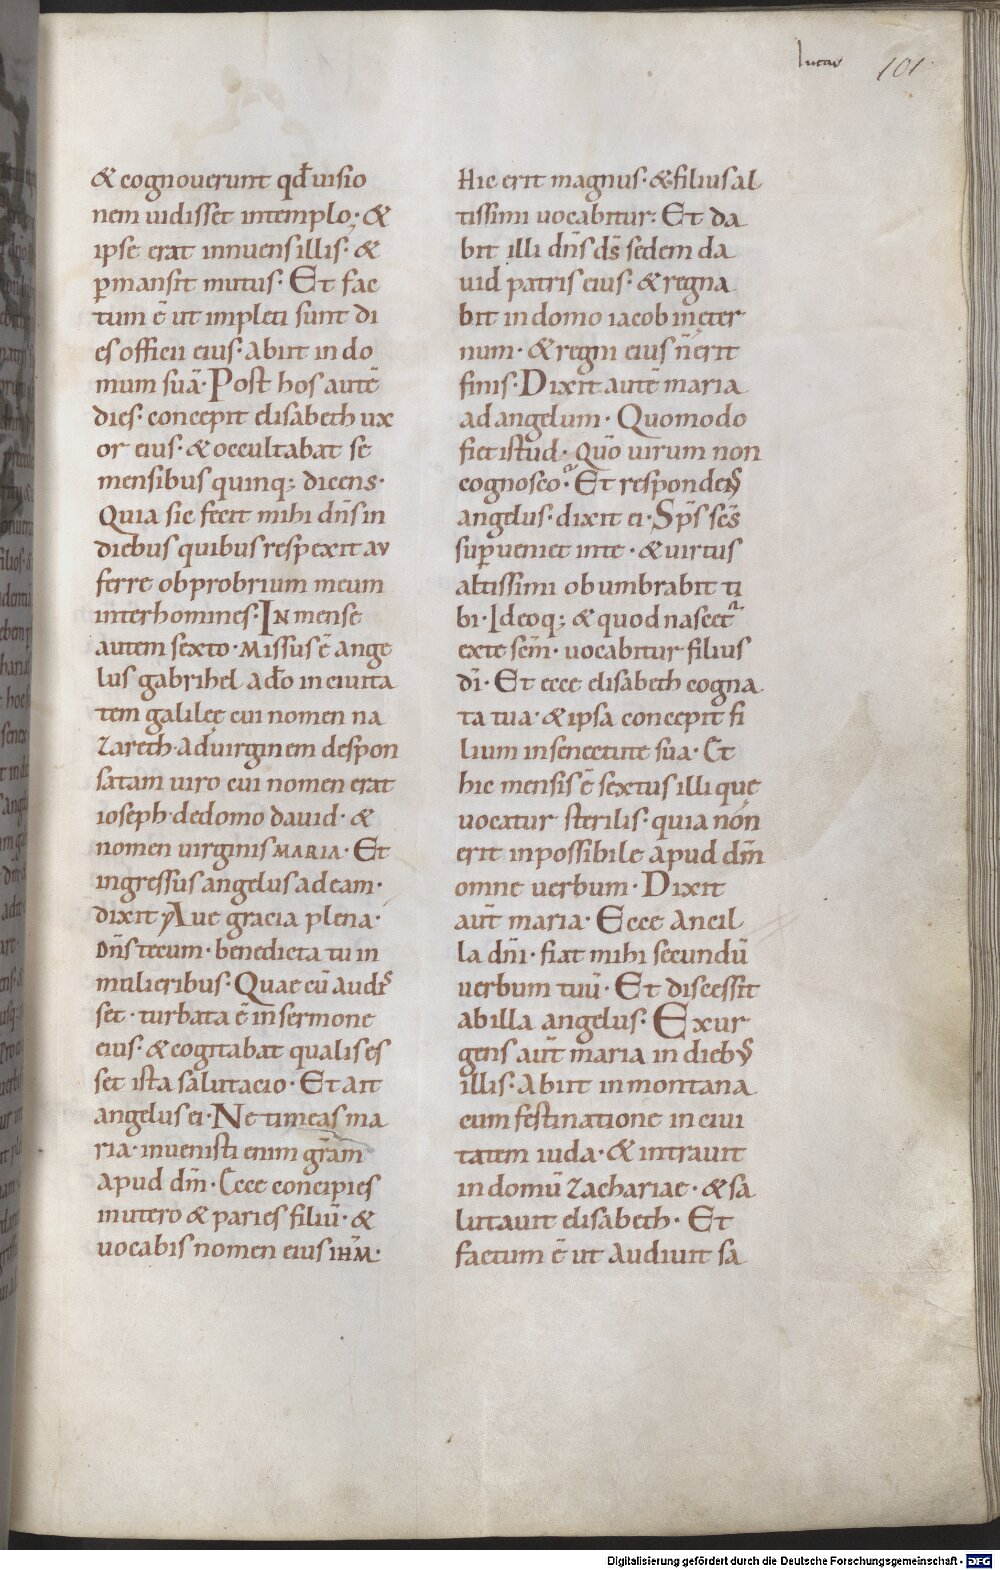 lucas 101
& cognouerunt qđ uisio
nem uidisset intemplo; &
ipse erat innuens illis· &
ꝑmansit mutus· Et fac
tum ē ut impleti sunt di
es officii eius· abiit in do
mum suā· Post hos autē
dies· concepit elisabeth ux
or eius· & occultabat se
mensibus quinq; dicens·
Quia sic fecit mihi dn̄s in
diebus quibus respexit au
ferre obprobrium meum
inter homines· IN mense
autem sexto· missus ē ange
lus gabrihel a do̅ in ciuita
tem galileę cui nomen na
zareth· aduirginem despon
satam uiro cui nomen erat
ioseph· dedomo dauid· &
nomen uirginis MARIA· Et
ingressus angelus ad eam·
dixit Aue gracia plena·
Dn̄s tecum· benedicta tu in
mulieribus· Quae cū audis
set· turbata ē in sermone
eius· & cogitabat qualis es
set ista salutacio· Et ait
angelus ei· Ne timeas ma
ria· inuenisti enim grām
apud dm̄· Ecce concipies
inutero & paries filiū· &
uocabis nomen eius IHM̄·
Hic erit magnus· & filius al
tissimi uocabitur· Et da
bit illi dn̄s ds̄ sedem da
uid patris eius· & regna
bit in domo iacob in eter
num· & regni eius n̄ erit
finis· Dixit autē maria
ad angelum· Quomodo
fiet istud· Quō uirum non
cognosco· Et respondens
angelus· dixit ei· Sp̄s sc̄s
suꝑueniet inte· & uirtus
altissimi obumbrabit ti
bi· Ideoq; & quod nascet᷑
exte sc̄m· uocabitur filius
dī· Et ecce elisabeth cogna
ta tua· & ipsa concepit fi
lium in senectute sua· Et
hic mensis ē sextus illi quę
uocatur sterilis· quia non
erit inpossibile apud dm̄
omne uerbum· Dixit
aut̄ maria· Ecce ancil
la dn̄i· fiat mihi secundū
uerbum tuū· Et discessit
ab illa angelus· Exur
gens aut̄ maria in dieb;
illis· abiit in montana
cum festinatione in ciui
tatem iuda· & intrauit
in domū zachariae· & sa
lutauit elisabeth· Et
factum ē ut audiuit sa
Digitalisierung gefördert durch die Deutsche Forschungsgemeinschaft - DFG